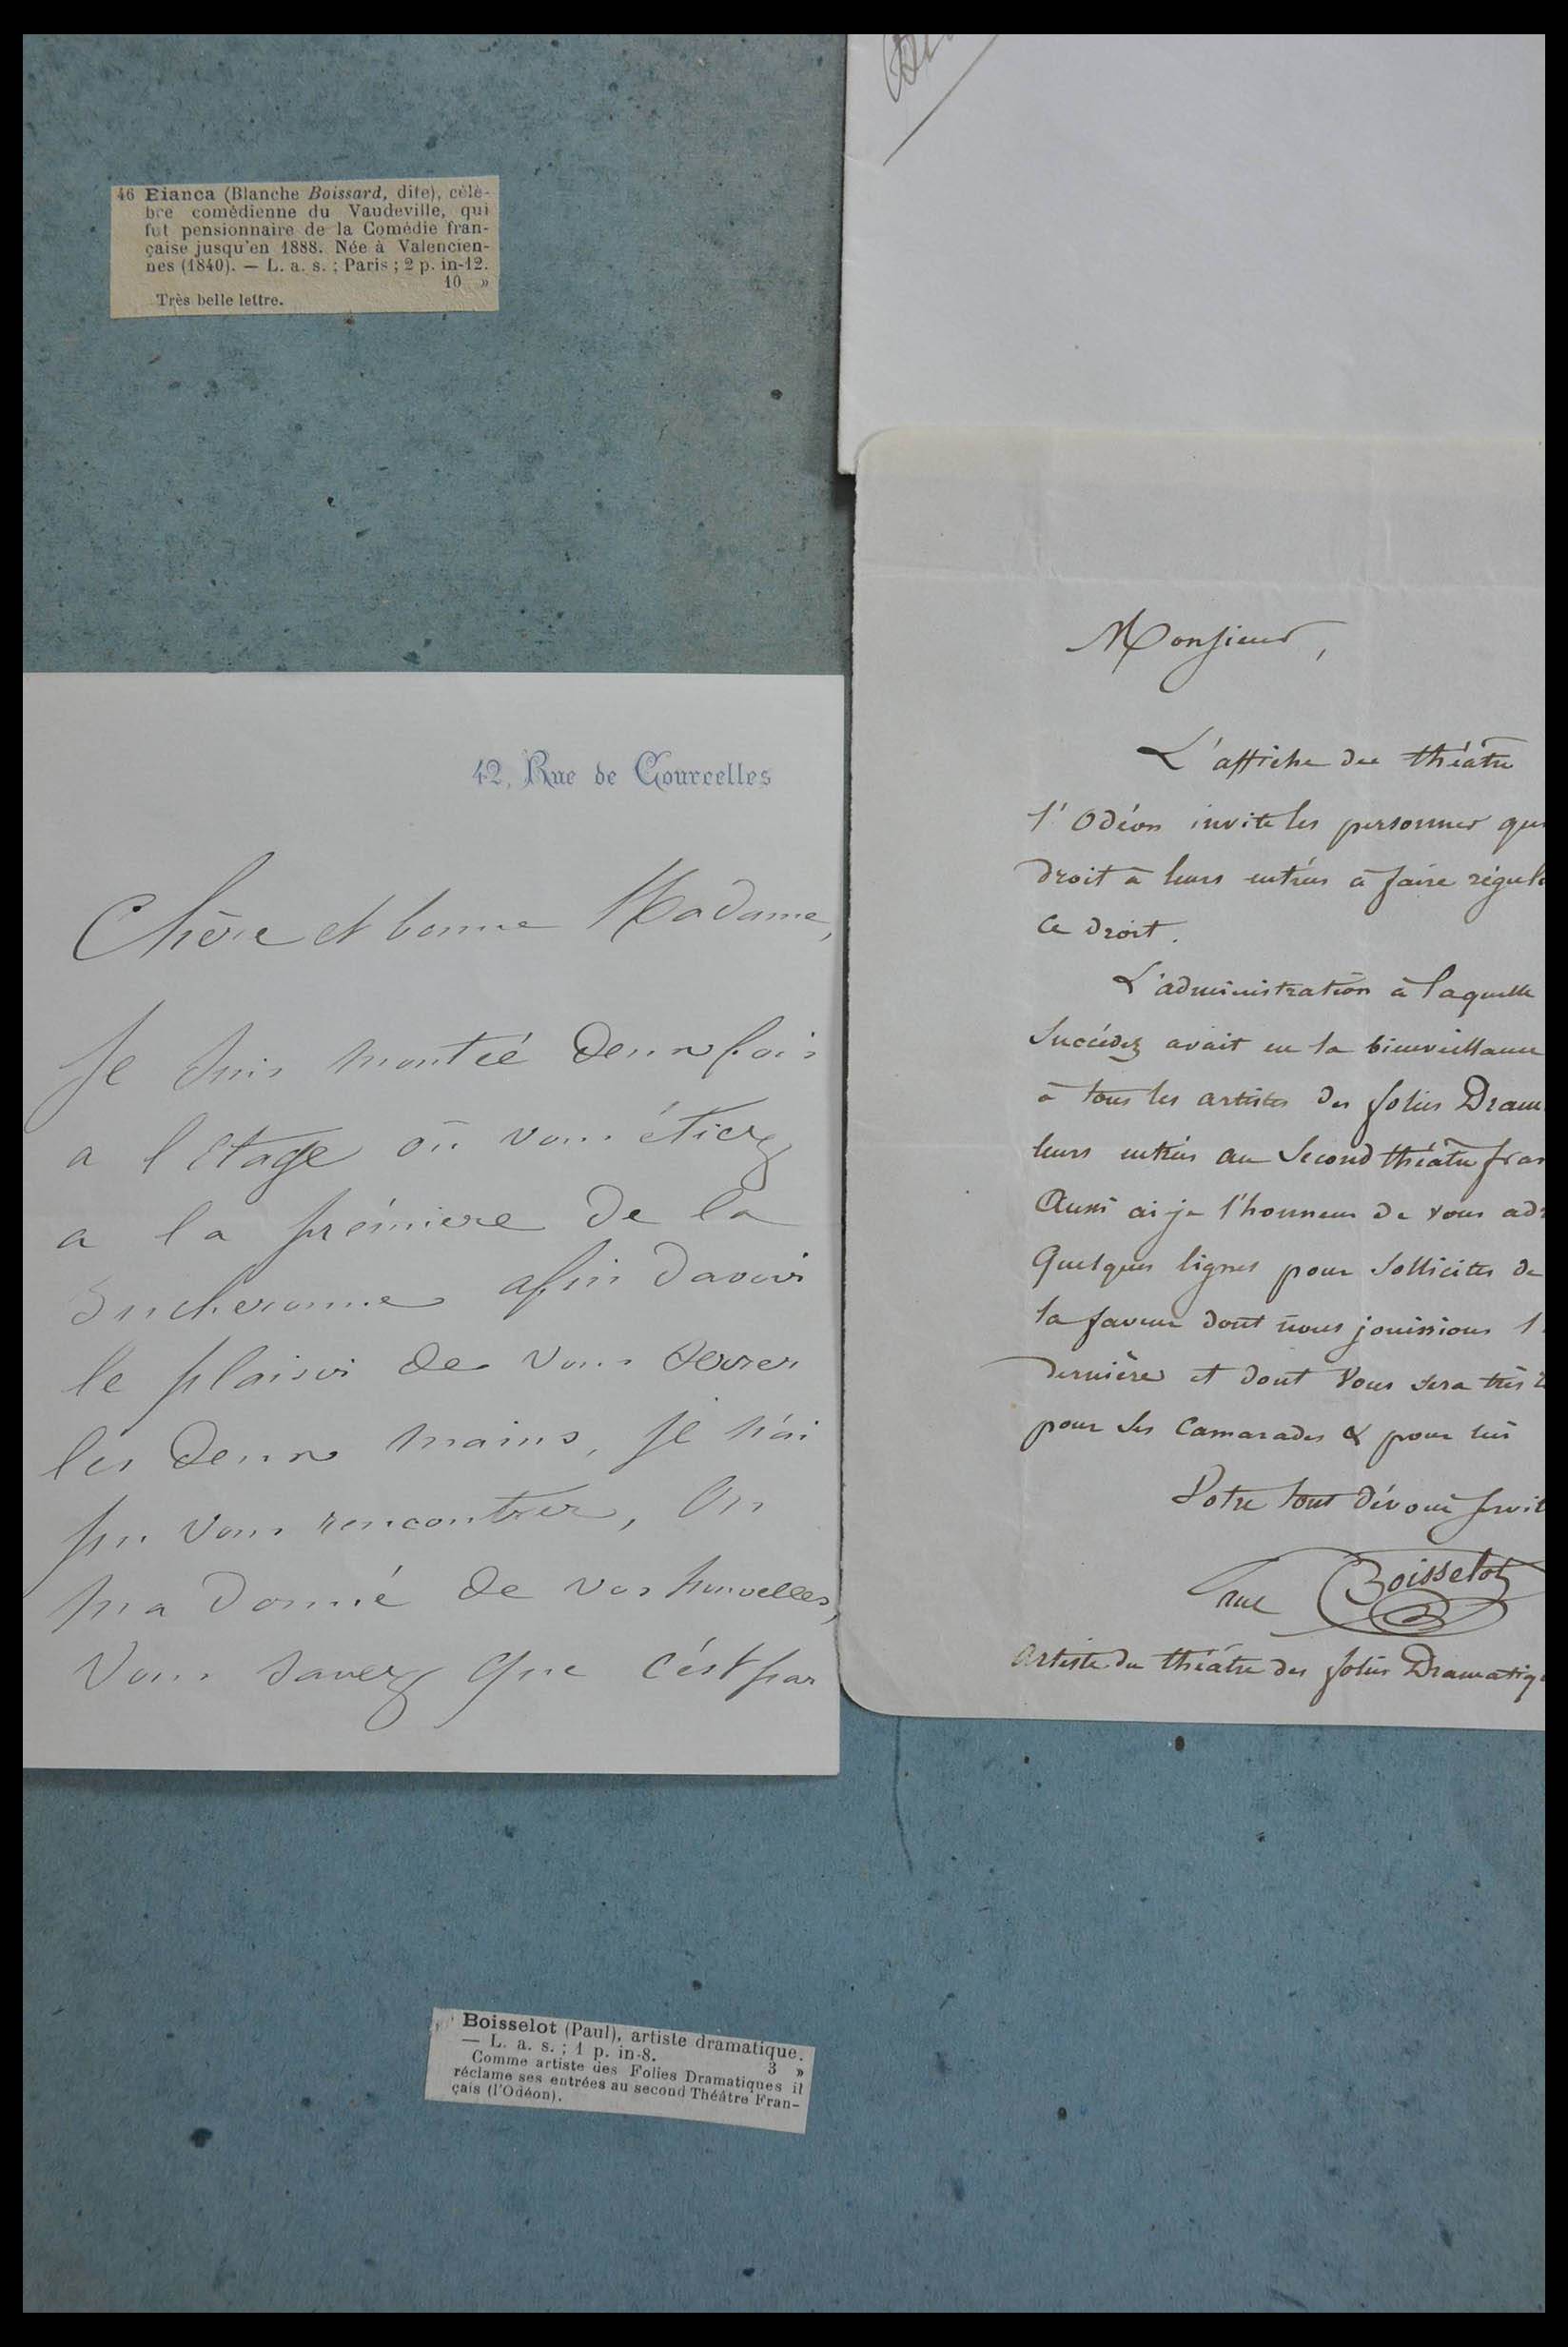 46 Bianca (Blanche Boissard, dite), célè-
bre comédienne du Vaudeville, qui
fut pensionnaire de la Comédie fran-
çaise jusqu'en 1888. Née à Valencien-
nes (1840). — L. a. s. ; Paris ; 2 p. in-12.
10 »
Très belle lettre.
42, Rue de Courcelles
Chère et bonne Madame,
Je suis montée deux fois
a l'étage où vous étiez
a la prémiere de la
Bucheronne afin d'avoir
le plaisir de vous serrer
les deux mains, je n'ai
pu vous rencontrer, On
m'a donné de vos nouvelles,
Vous savez que c'est par
Monsieur,
L'affiche du théâtre
l'Odéon invite les personnes qui
droit à leurs entrées à faire régul
ce droit.
L'administration à laquelle
Succédez avait eu la bienveillance
à tous les artistes des folies Dram
leurs entrées au Second théâtre fran
Aussi ai je l'honneur de vous adr
Quelques lignes pour solliciter de
la faveur dont nous jouissions l'
dernière et dont Vous sera très
pour ses Camarades & pour lui
Votre tout dévoué servit
Paul Boisselot
Artiste du théâtre des folies Dramatiq
Boisselot (Paul), artiste dramatique.
— L. a. s. ; 1 p. in-8. 3 »
Comme artiste des Folies Dramatiques il
réclame ses entrées au second Théâtre Fran-
çais (l'Odéon).